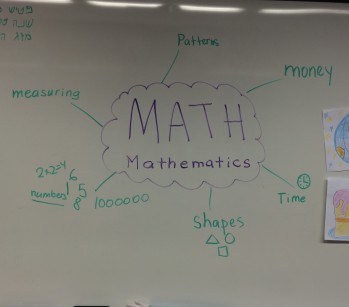 Patterns
money
measuring
MATH
Mathematics
2+2=4
6
numbers
1
5
8
1000000
Time
Shapes